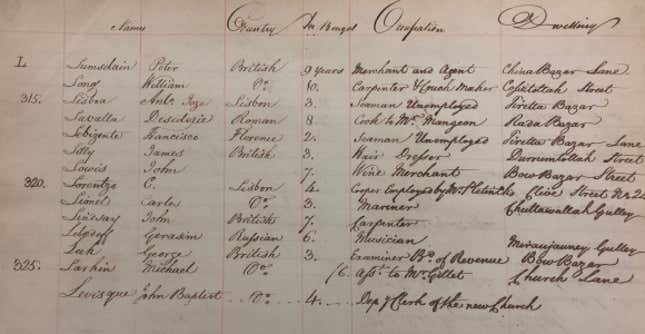 Names Country In Bengal Occupation Dwelling
L Lumsdain Peter British 9 years Merchant and Agent China Bazar Lane
Long William Do. 10. Carpenter & Couch Maker Street
315. Lisboa Anto. Joze Lisbon 3. Seaman Unemployed Tiretta Bazar
Lavalla Desederie Roman 8 Cook to Mr. Mangeon Rada Bazar
Lebizente Francisco Florence 2. Seaman Unemployed Tiretta Bazar Lane
Lilly James British 3. Hair Dresser Durrumtollah Street
Lewis John 7. Wine Merchant Bow Bazar Street
320. Lorentzo C. Lisbon 4. Cooper Employed by Clive Street No 24
Lionet Carlos Do. 3. Mariner Chuttawallah Gulley
Lindsay John British 7. Carpenter
Gerasim Russian 6. Musician Gulley
Leek George British 3. Examiner Bd. of Revenue Bow Bazar
325. Larkin Michael Do. 16. Asst. to Mr. Gillet Church Lane
Levisque John Baptist Do. 4. Depy. Clerk of the new Church